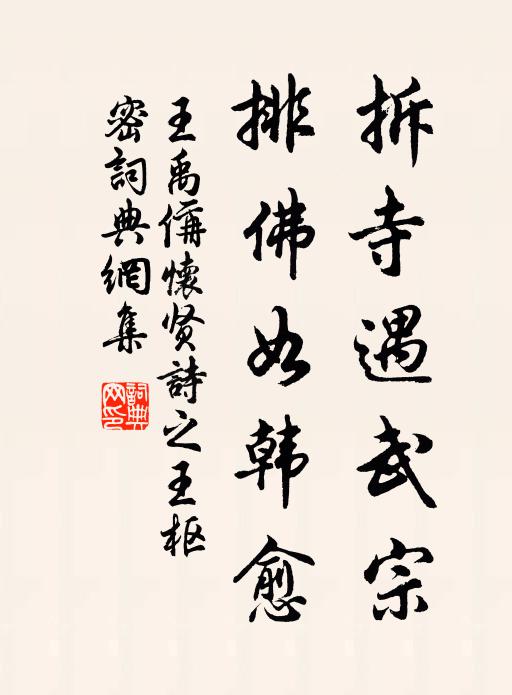 拆寺遇武宗
排佛如韩愈
王禹偁懷贤詩之王枢
密詞典網集
詞典網印